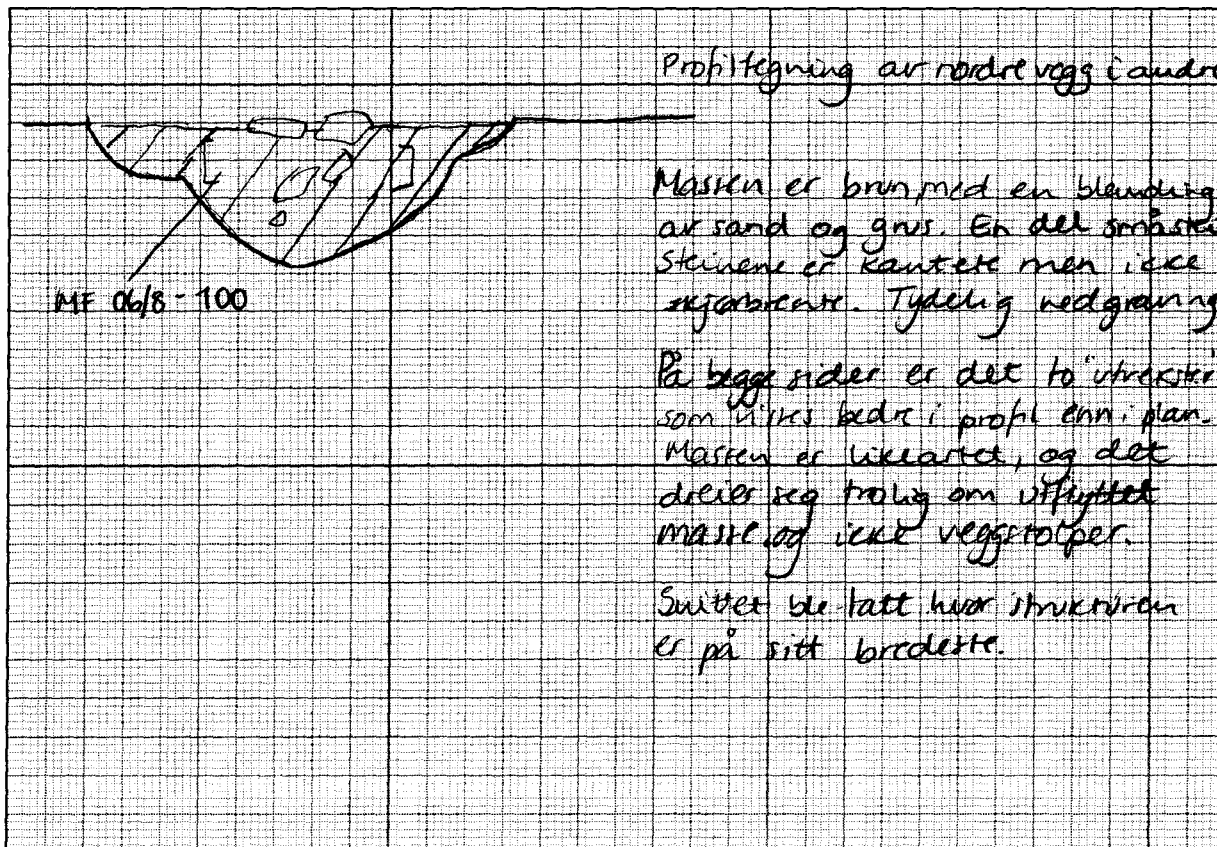 Profiltegning av nordre vegg i andre
Massen er brun, med en blanding
av sand og grus. En del småstei
Steinene er kantete men ikke
skjørbrente. Tydelig nedgravning
MF 06/8 - 100
På begge sider er det to "utvekster"
som vises bedre i profil enn i plan.
Massen er likeartet, og det
dreier seg trolig om utflyttet
masse og ikke veggstolper.
Snittet ble tatt hvor strukturen
er på sitt bredeste.